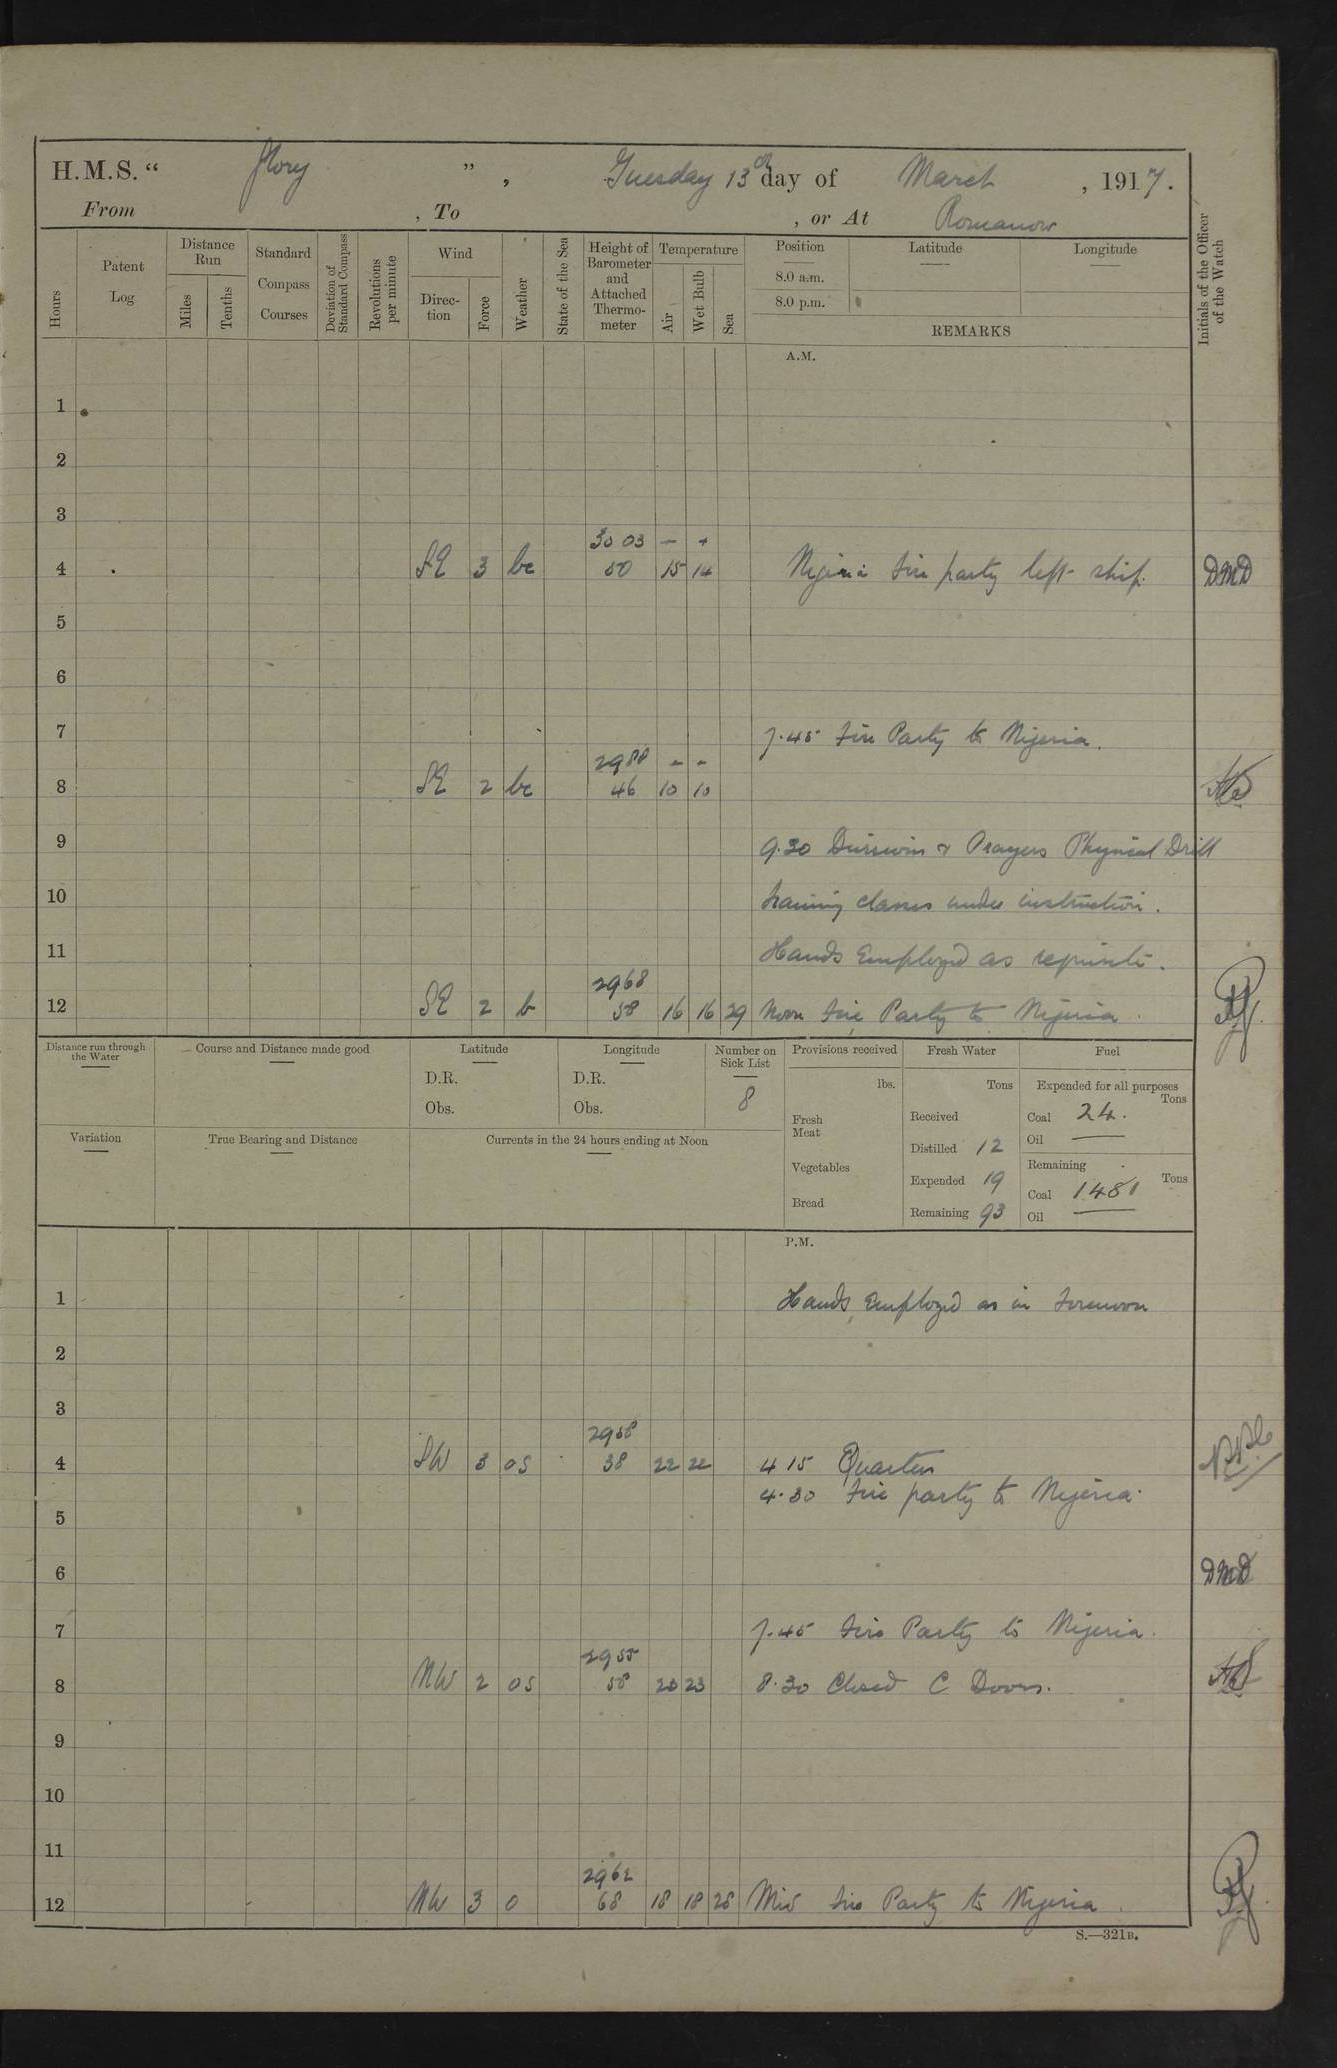 H.M.S. “ Glory ” , Tuesday 13th day of March , 1917.
From , To , or At Romanow
Hours
Patent Log
Distance Run
Miles
Tenths
Standard Compass Courses
Deviation of Standard Compass
Revolutions per minute
Wind
Direction
Force
Weather
State of the Sea
Height of Barometer and Attached Thermometer
Temperature
Air
Wet Bulb
Sea
Position
8.0 a.m.
8.0 p.m.
Latitude
Longitude
REMARKS
Initials of the Officer of the Watch
A.M.
1
2
3
30 03 - -
4 SE 3 bc 50 15 14 Nigeria fire party left ship. DMD
5
6
7 7.45 Fire Party to Nigeria.
2988 - -
8 SE 2 bc 46 10 10
9 9.30 Divisions & Prayers Physical Drill
10 training classes under instruction.
11 Hands Employed as requisite.
2968
12 SE 2 b 58 16 16 29 Noon Fire Party to Nigeria
Distance run through the Water
Course and Distance made good
Latitude
D.R.
Obs.
Longitude
D.R.
Obs.
Number on Sick List
8
Provisions received
lbs.
Fresh Meat
Vegetables
Bread
Fresh Water
Tons
Received
Distilled 12
Expended 19
Remaining 93
Fuel
Expended for all purposes
Tons
Coal 24.
Oil
Remaining
Tons
Coal 1481
Oil
Variation
True Bearing and Distance
Currents in the 24 hours ending at Noon
P.M.
1 Hands Employed as in Forenoon
2
3
2958
4 SW 3 os 38 22 22 4 15 Quarters
4.30 Fire party to Nigeria.
5
6 DMD
7 7.45 Fire Party to Nigeria.
2955
8 NW 2 os 58 23 8.30 Closed C Doors.
9
10
11
2962
12 NW 3 o 68 18 18 28 Mid Fire Party to Nigeria
S.—321B.